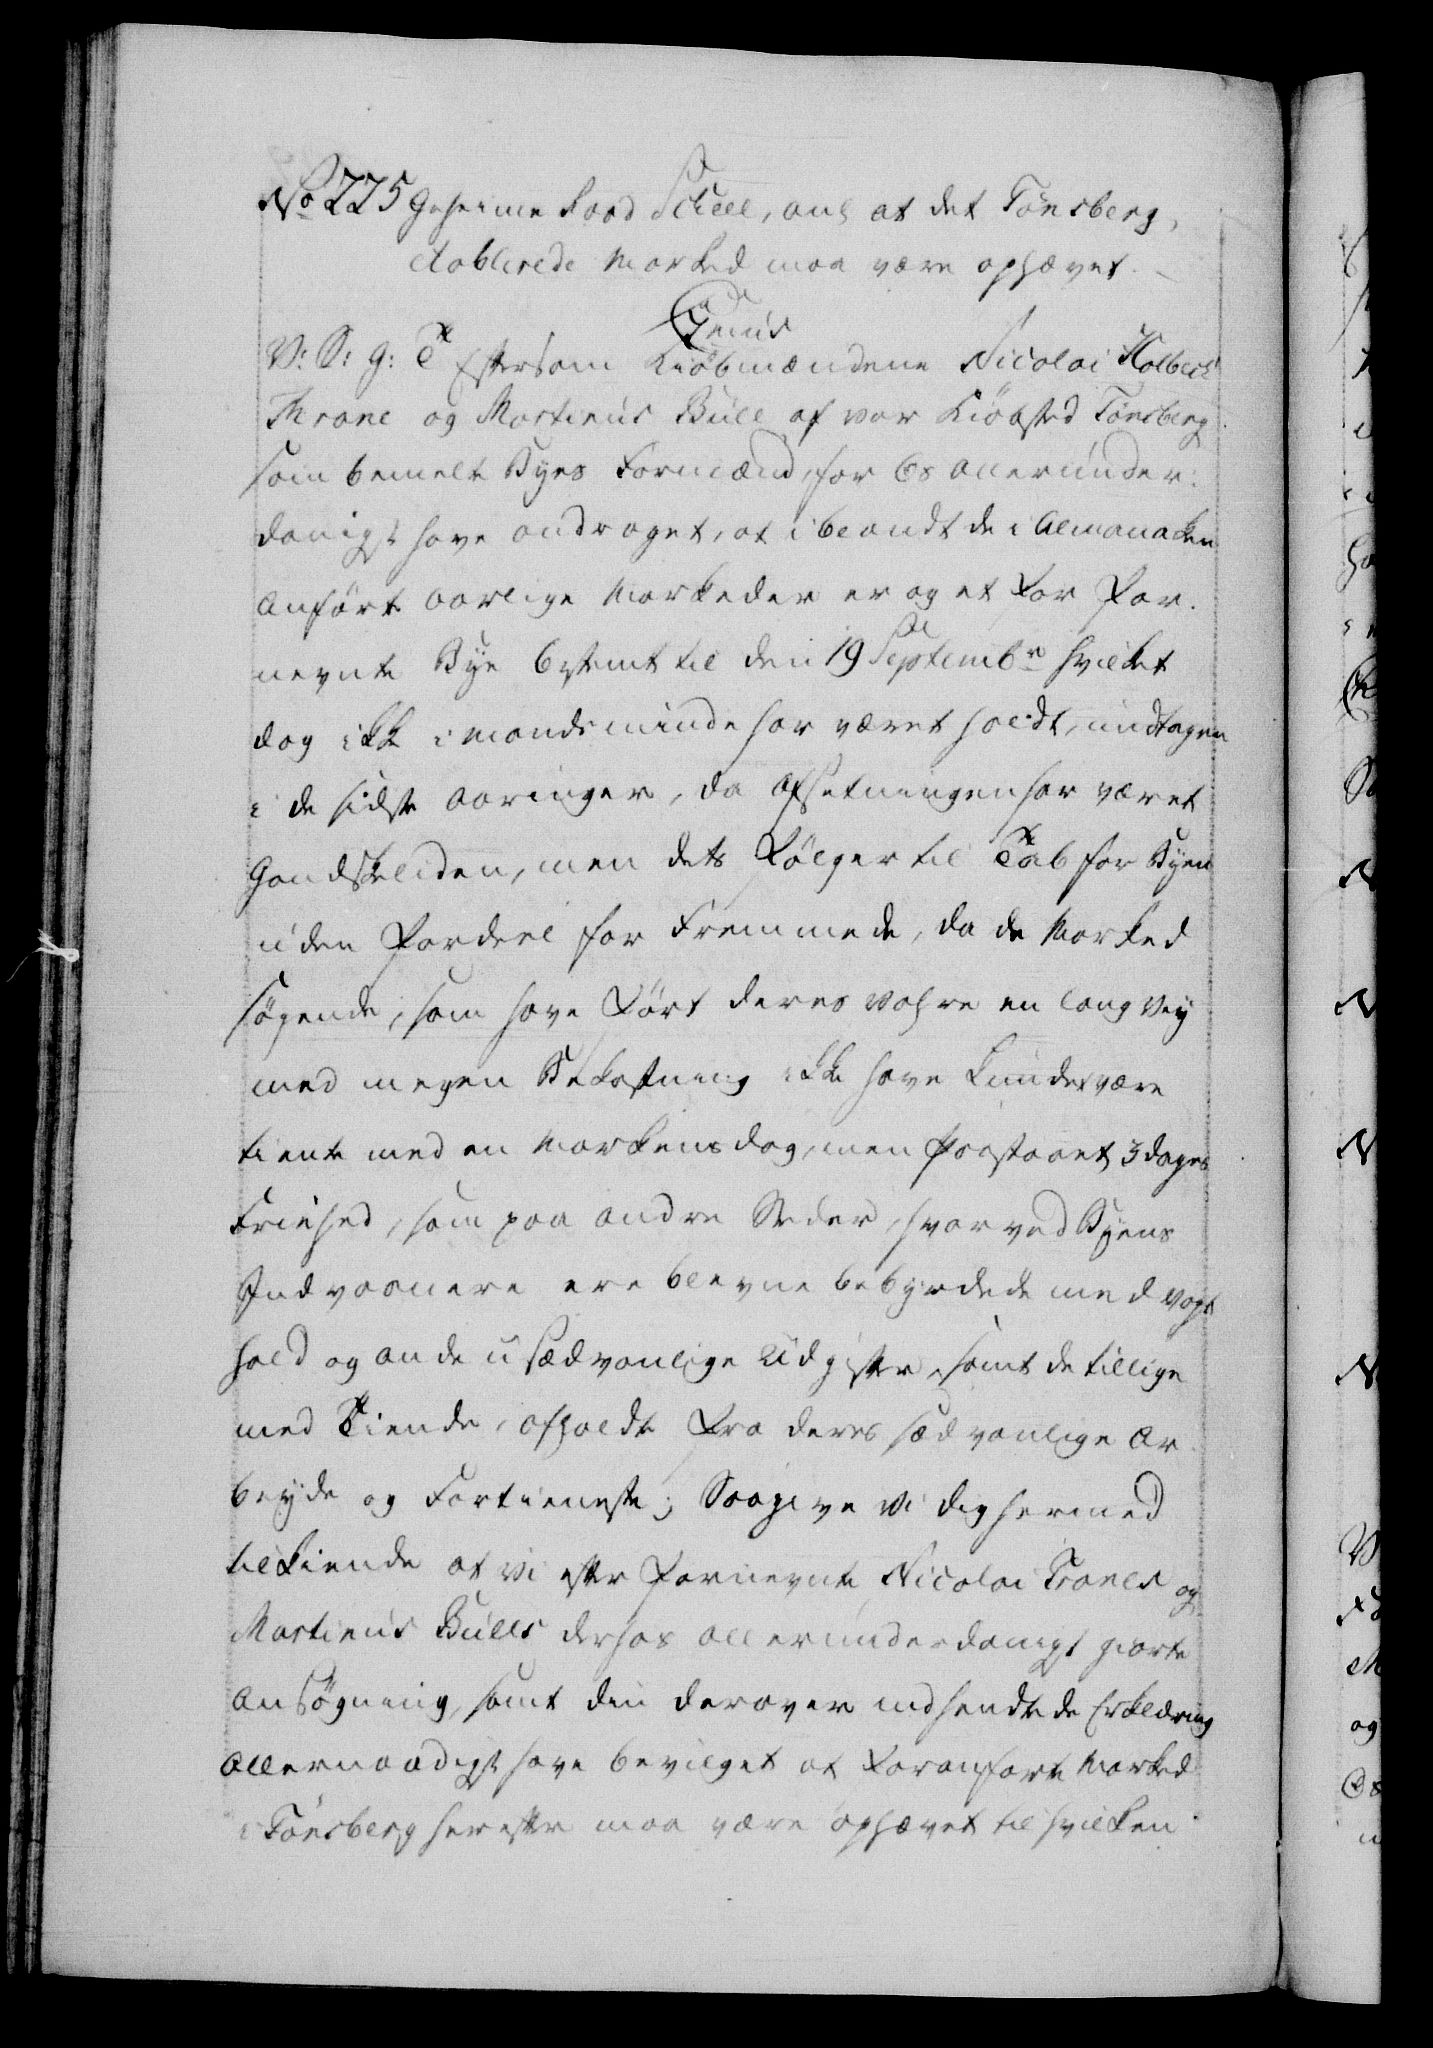 No 225 Geheime Raad Scheel, anl at det Tönsberg,
etablerede Marked maa være ophævet.
V: S: G: T Eftersom Kiöbmændene Nicolai Holbech
Thrane og Martinus Bull af vor Kiöbsted Tönsberg
som bemelte Byes Formænd, for Os allerunder:
danigst have andraget, at iblandt de i Almanacken
anförte aarlige Markeder er og et for for.
nevnte Bye bestemt til den 19 Septembr hvilket
dog ikke i Mands minde har været holdt, undtagen
i de sidste Aaringer, da Afsetningen har været
Gandske liden, men dets Fölger til Tab for Byen
uden Fordeel for Fremmede, da de Marked
sögende, som have Fört deres Vahre en lang Vey
med megen Bekostning ikke have kundet være
tiente med en Markens dag, men paastaaet 3 dages
Friehed, som paa andre Steder, hvorved Byens
Indvaanere ere blevne bebyrdede med Vagt
hold og ande usædvanlige Udgifter, samt de tillige
med Tiende, afholdt fra deres sædvanlige Ar
beyde og Fortieneste; Saa give Vi dig hermed
tilkiende at Vi efter fornevnte Nicolai Tranes og
Martinus Bulls derhos allerunderdanigst giorte
Ansögning, samt din derover indsendte de Erklæring
Allernaadigst have bevilget at foranförte Marked
i Tönsberg herefter maa være ophævet til hvilken